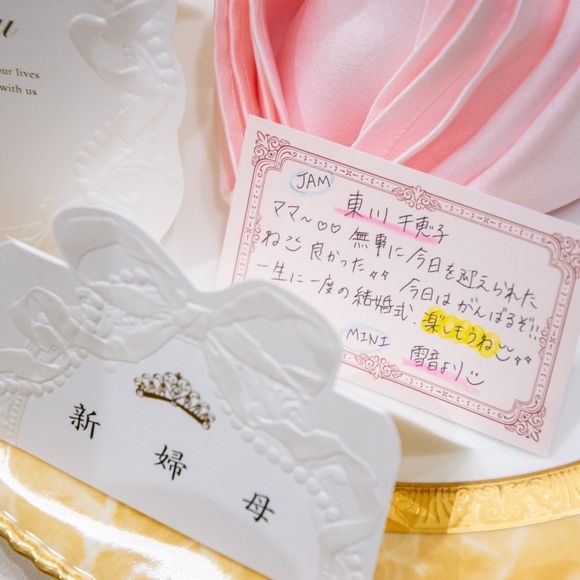 u
our lives
with us
JAM
東川 千恵子
ママ〜♡♡ 無事に今日を迎えられた
ね 良かった 今日はがんばるぞ!!
一生に一度の結婚式、楽しもうね
MINI
雪音より
新婦母